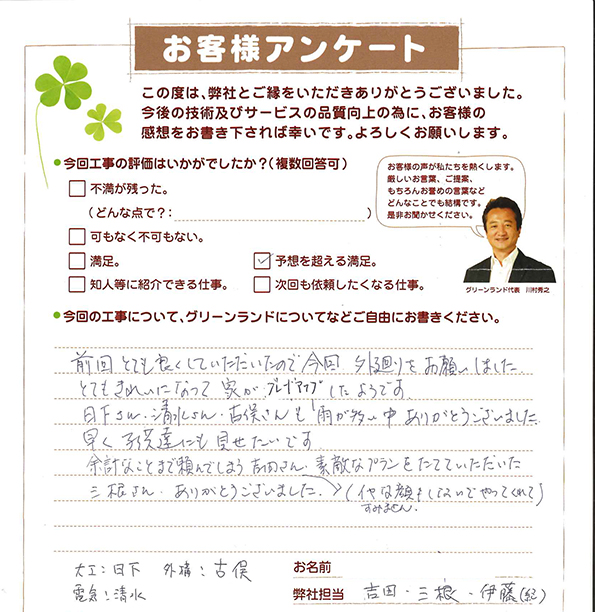 お客様アンケート
この度は、弊社とご縁をいただきありがとうございました。
今後の技術及びサービスの品質向上の為に、お客様の
感想をお書き下されば幸いです。よろしくお願いします。
●今回工事の評価はいかがでしたか?(複数回答可)
不満が残った。
(どんな点で?: )
可もなく不可もない。
満足。
予想を超える満足。
知人等に紹介できる仕事。
次回も依頼したくなる仕事。
お客様の声が私たちを熱くします。
厳しいお言葉、ご提案、
もちろんお誉めの言葉など
どんなことでも結構です。
是非お聞かせください。
グリーンランド代表 川村秀之
●今回の工事について、グリーンランドについてなどご自由にお書きください。
前回とても良くしていただいたので今回 外廻りをお願いしました
とてもきれいになって 家が グレードアップ したようです
日下さん・清水さん・古俣さんも 雨が多い中 ありがとうございました
早く 子供達にも 見せたいです
余計なことまで頼んでしまう吉田さん、素敵なプランをたてていただいた
三根さん、ありがとうございました (イヤな顔もしないでやってくれて)
すみません
大工:日下 外構:古俣
電気:清水
お名前
弊社担当 吉田・三根・伊藤(紀)